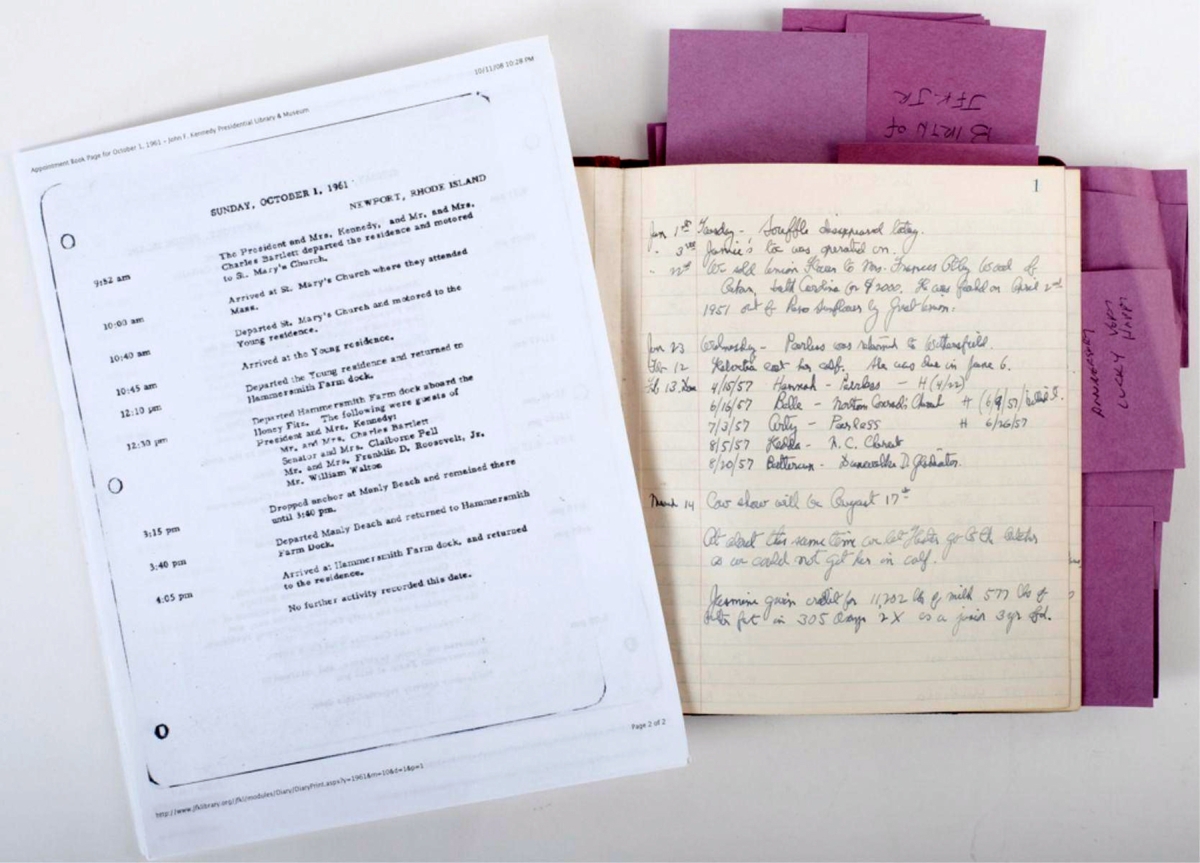 10/11/08 10:28 PM
Appointment Book Page for October 1, 1961 - John F. Kennedy Presidential Library & Museum
SUNDAY, OCTOBER 1, 1961
NEWPORT, RHODE ISLAND
9:52 am
The President and Mrs. Kennedy, and Mr. and Mrs.
Charles Bartlett departed the residence and motored
to St. Mary's Church.
10:00 am
Arrived at St. Mary's Church where they attended
Mass.
10:40 am
Departed St. Mary's Church and motored to the
Young residence.
10:45 am
Arrived at the Young residence.
12:10 pm
Departed the Young residence and returned to
Hammersmith Farm dock.
12:30 pm
Departed Hammersmith Farm dock aboard the
Honey Fitz. The following were guests of
President and Mrs. Kennedy:
Mr. and Mrs. Charles Bartlett
Senator and Mrs. Claiborne Pell
Mr. and Mrs. Franklin D. Roosevelt, Jr.
Mr. William Walton
3:15 pm
Dropped anchor at Manly Beach and remained there
until 3:40 pm.
3:40 pm
Departed Manly Beach and returned to Hammersmith
Farm Dock.
4:05 pm
Arrived at Hammersmith Farm dock, and returned
to the residence.
No further activity recorded this date.
Page 2 of 2
http://www.jfklibrary.org/jfkl/modules/Diary/DiaryPrint.aspx?y=1961&m=10&d=1&p=1
BIRTH of
JFK-JR
1
Jan 1st Tuesday - Souffle disappeared today.
" 3rd Jamie's toe was operated on.
" 22nd We sold Union to Mrs. Frances Wood of
South Carolina for $2000. He was foaled on April 2nd
1951 out of Sunflower by Great Union.
Jan 23 Wednesday - Peerless was returned to
Feb 12 cast her calf. She was due in June 6.
Feb 13 4/15/57 Hannah - Peerless - H (4/22)
6/16/57 Belle - Norton Conrad's H (6/9/57
7/3/57 - Peerless H 6/26/57
8/5/57 Hedda - N.C.
8/20/57 Buttercup - D.
March 14 Cow show will be August 17th
At about this same time we let go to the
as we could not get her in calf.
Jasmine given credit for 11,202 lbs of milk 577 lbs of
butter fat in 305 days 2X as a junior 3 yr old.
ANNIVERSARY
LUCKY VERY
HAPPY